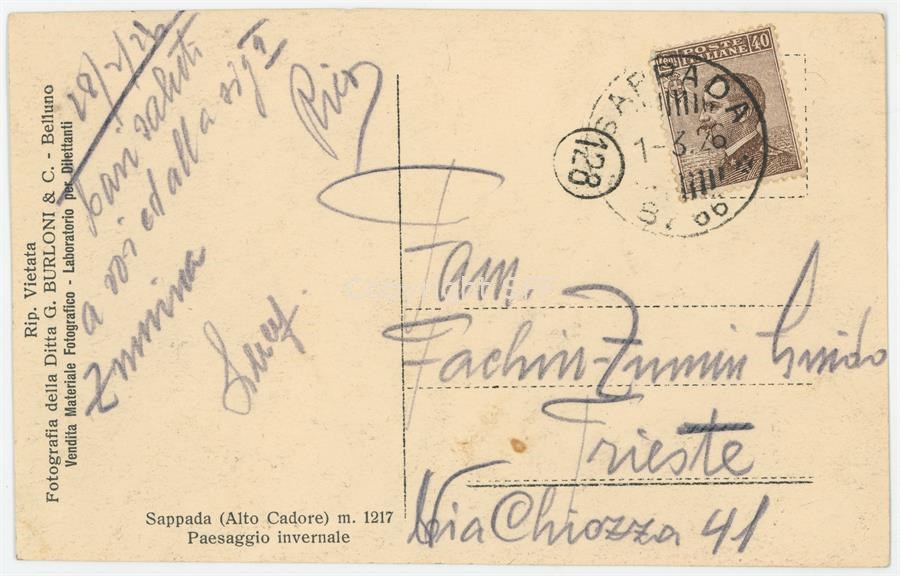 Rip. Vietata
Fotografia della Ditta G. BURLONI & C. - Belluno
Vendita Materiale Fotografico - Laboratorio per Dilettanti
28/2/26
Cari saluti
a voi ed alla sigª
Zummin
POSTE
ITALIANE
40
SAPPADA
1-3.26
BL 66
128
Fam.
Fachin-Zumin Guido
Trieste
Via Chiozza 41
Sappada (Alto Cadore) m. 1217
Paesaggio invernale